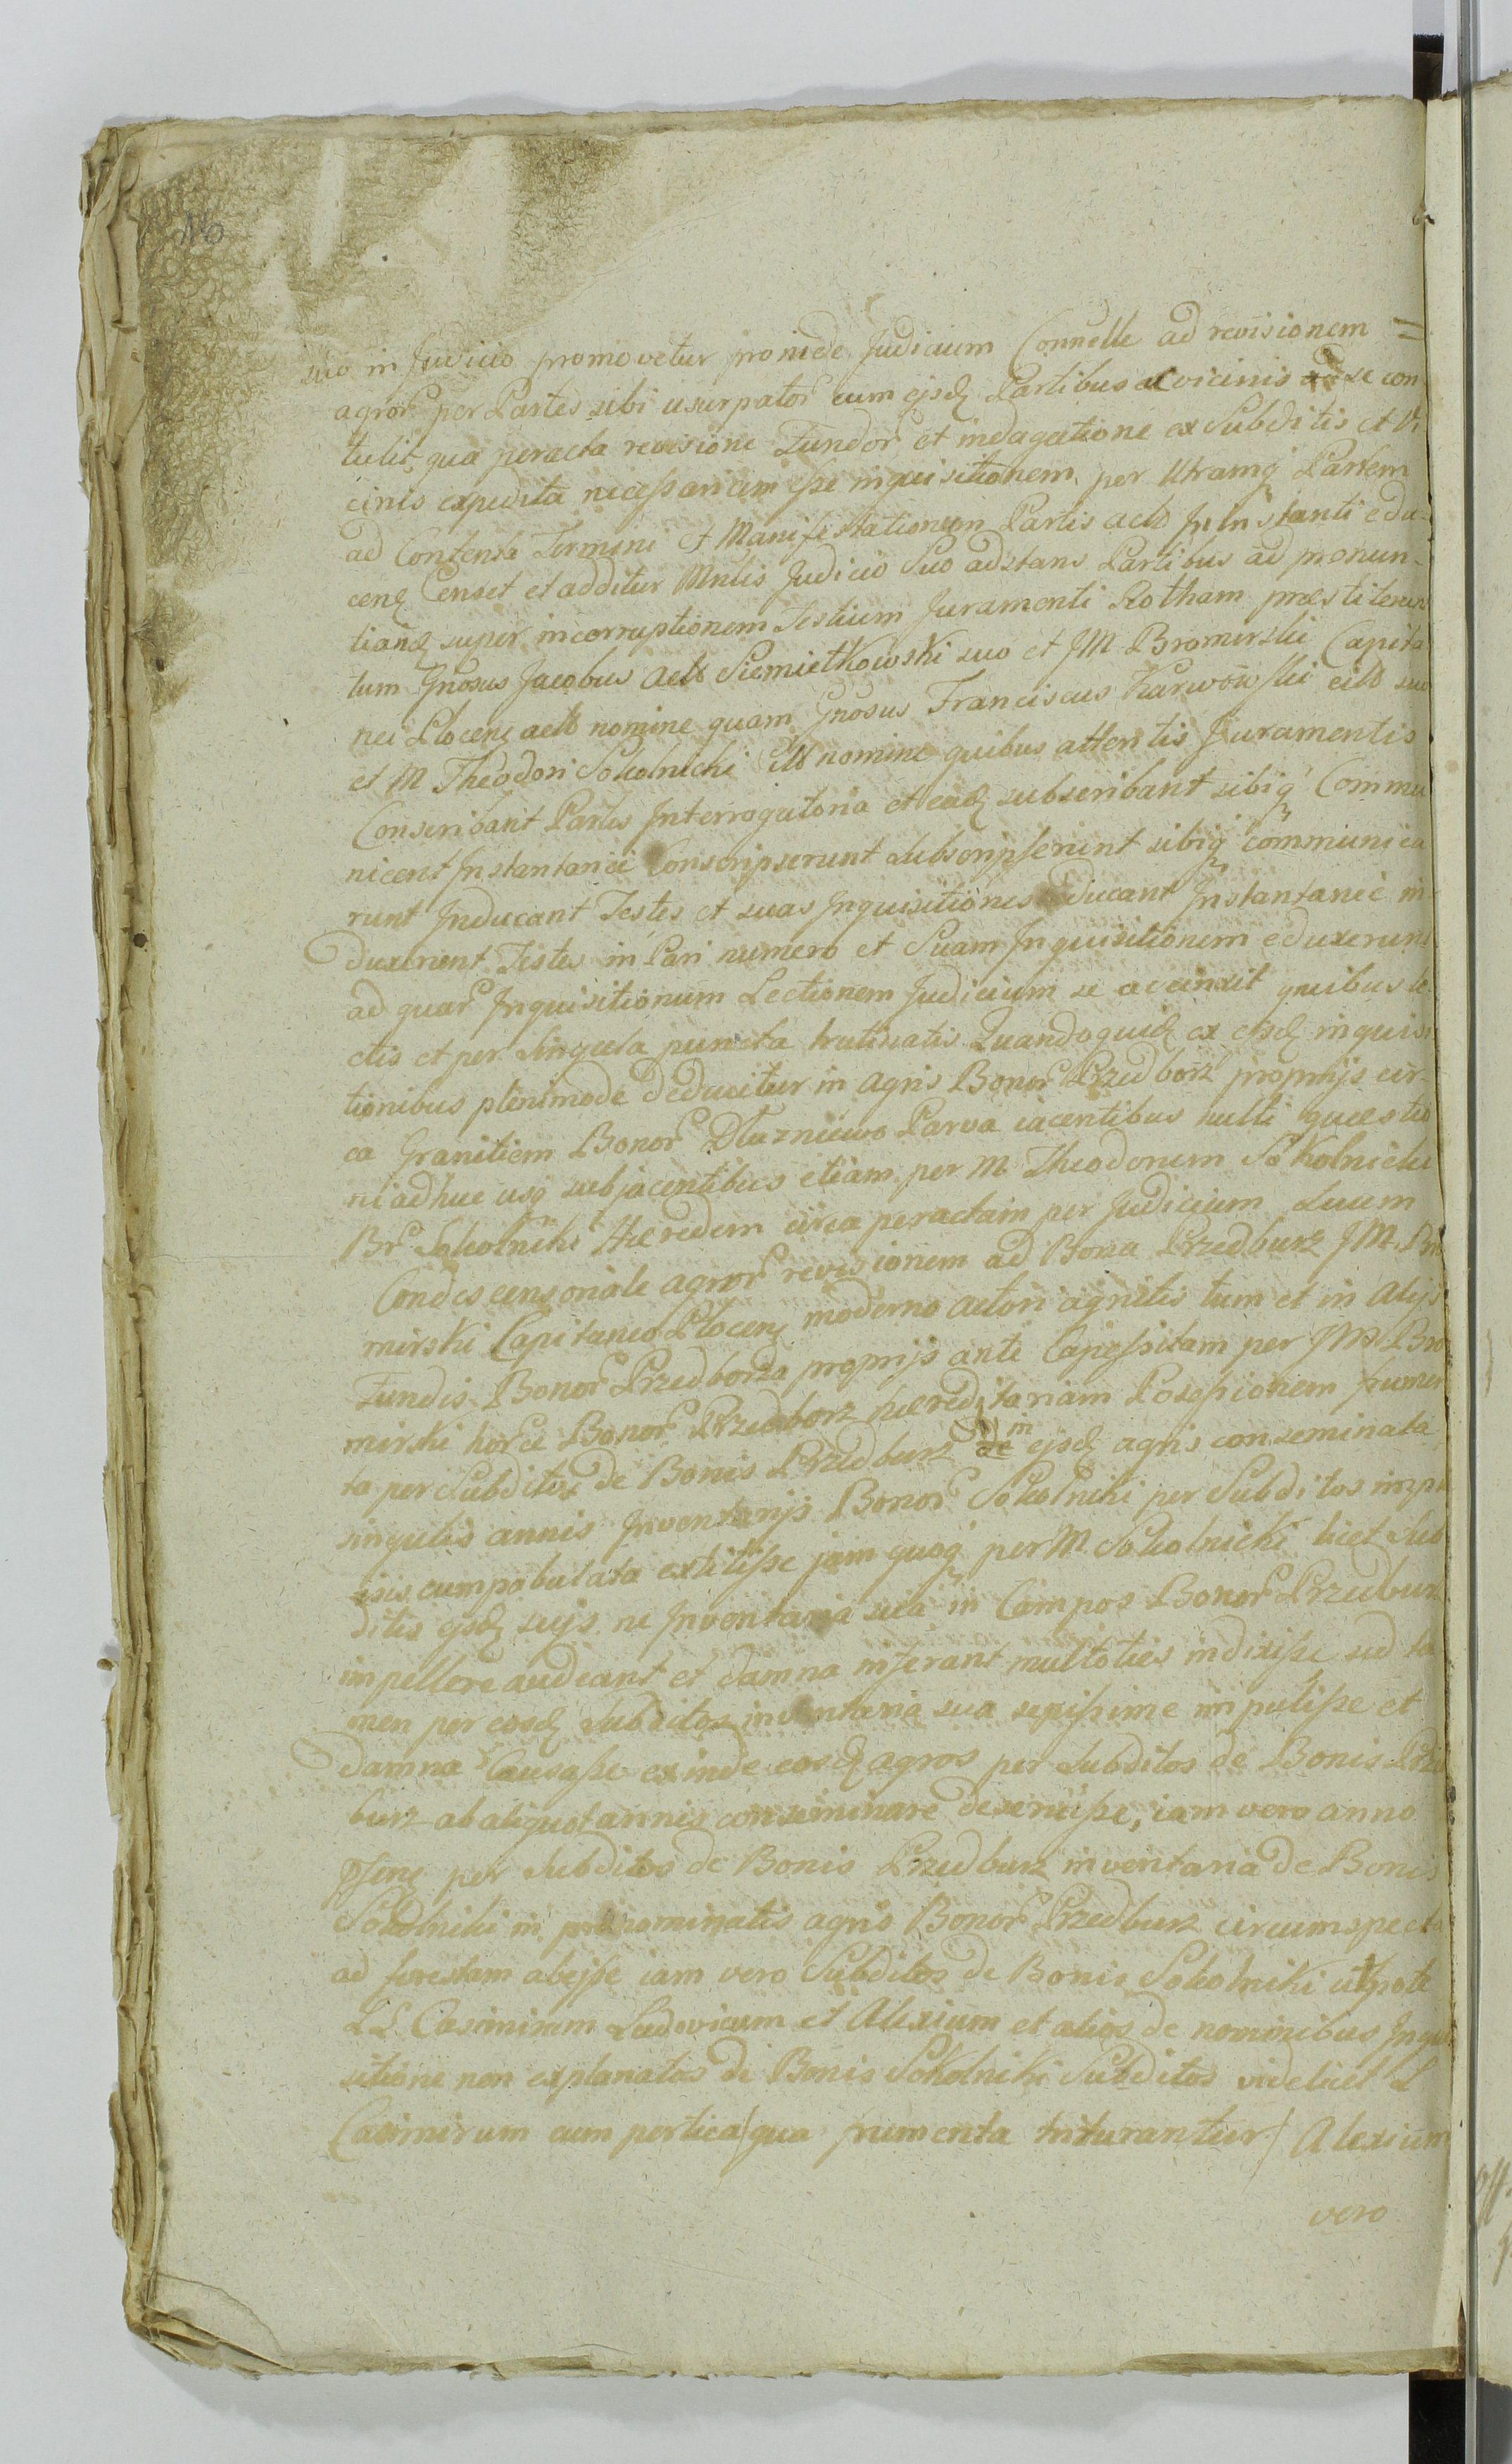 16
suo in Judicio promovetur proinde Judicium Connelle ad revisionem =
agror per Partes sibi usurpator cum ejsdq Partibus ac vicinis se con
tulit, qua peracta revisione Fundor et indagatione ex Subditis et Vi
cinis expedita necessariam esse inquisitionem per Utramq Partem
ad Contenta Termini et Manifestationum Partis actb In Instanti edu-
cenq Censet et additur Mnlis Judicio Suo adstans Partibus ad pronun-
tianq super incorruptionem Testium Juramenti Rotham præstiterun
tum Gnosus Jacobus actb Siemietkowski suo et JM Bromirski Capita
nei Plocenq actb nomine quam Gnosus Franciscus Karwowski citb suo
et M Theodori Sokolnicki citb nomine quibus attentis Juramentis
Conscribant Partes Interrogatoria et eadq subscribant sibiq Commu
nicent Instantanee Conscripserunt Subscripserunt sibiq communica
runt Inducant Testes et suas Inquisitiones educant Instantanee in
duxerunt Testes in Pari numero et Suam Inquisitionem eduxerunt
ad quar Inquisitionum Lectionem Judicium se accinxit quibus le
ctis et per Singula puncta trutinatis Quandoquidq ex ejsdq inquisi
tionibus plenimode deducitur in agris Bonor Przedborz proprijs cir-
ca Granitiem Bonor Dłuzniewo Parva iacentibus nulli quæstio
ni adhuc usq subjacentibus etiam per M Theodorum Sokolnicki
Br Sokolniki Hæredem circa peractam per Judicium Suum
Condescensoriale agror revisionem ad Bona Przedburz JM. Bro
mirski Capitaneo Plocenq moderno actori agnitis tum et in alijs
Fundis Bonor Przedborza proprijs ante Capessitam per JM Bro
mirski horce Bonor Przedborz hæreditariam Possessionem frumen
ta per Subditos de Bonis Przedburz in ejsdq agris conseminata
singulis annis Inventarijs Bonor Sokolniki per Subditos impu
isis cumpabulata extitisse jam quoq per M Sokolnicki licet Sub
ditis ejsdq suijs ne Inventaria sua in Campos Bonor Przedburz
impellere audeant et damna inferant multoties indixisse sed ta
men per eosdq Subditos inventaria sua sepissime impulisse et
damna Causasse exinde eosdq agros per Subditos de Bonis Przed
burz ab aliquot annis conseminare deseruisse, iam vero anno
psenq per Subditos de Bonis Przedburz inventaria de Bonis
Sokolniki in prænominatis agris Bonor Przedburz circumspecta
ad forestam abejsse iam vero Subditos de Bonis Sokolniki utpote
LL Casimirum Ludovicum et Alexium et alios de nominibus Inqui
sitione non explanatos de Bonis Sokolniki Subditos videlicet L
Casimirum cum pertica/qua frumenta triturantur/ Alexium
vero